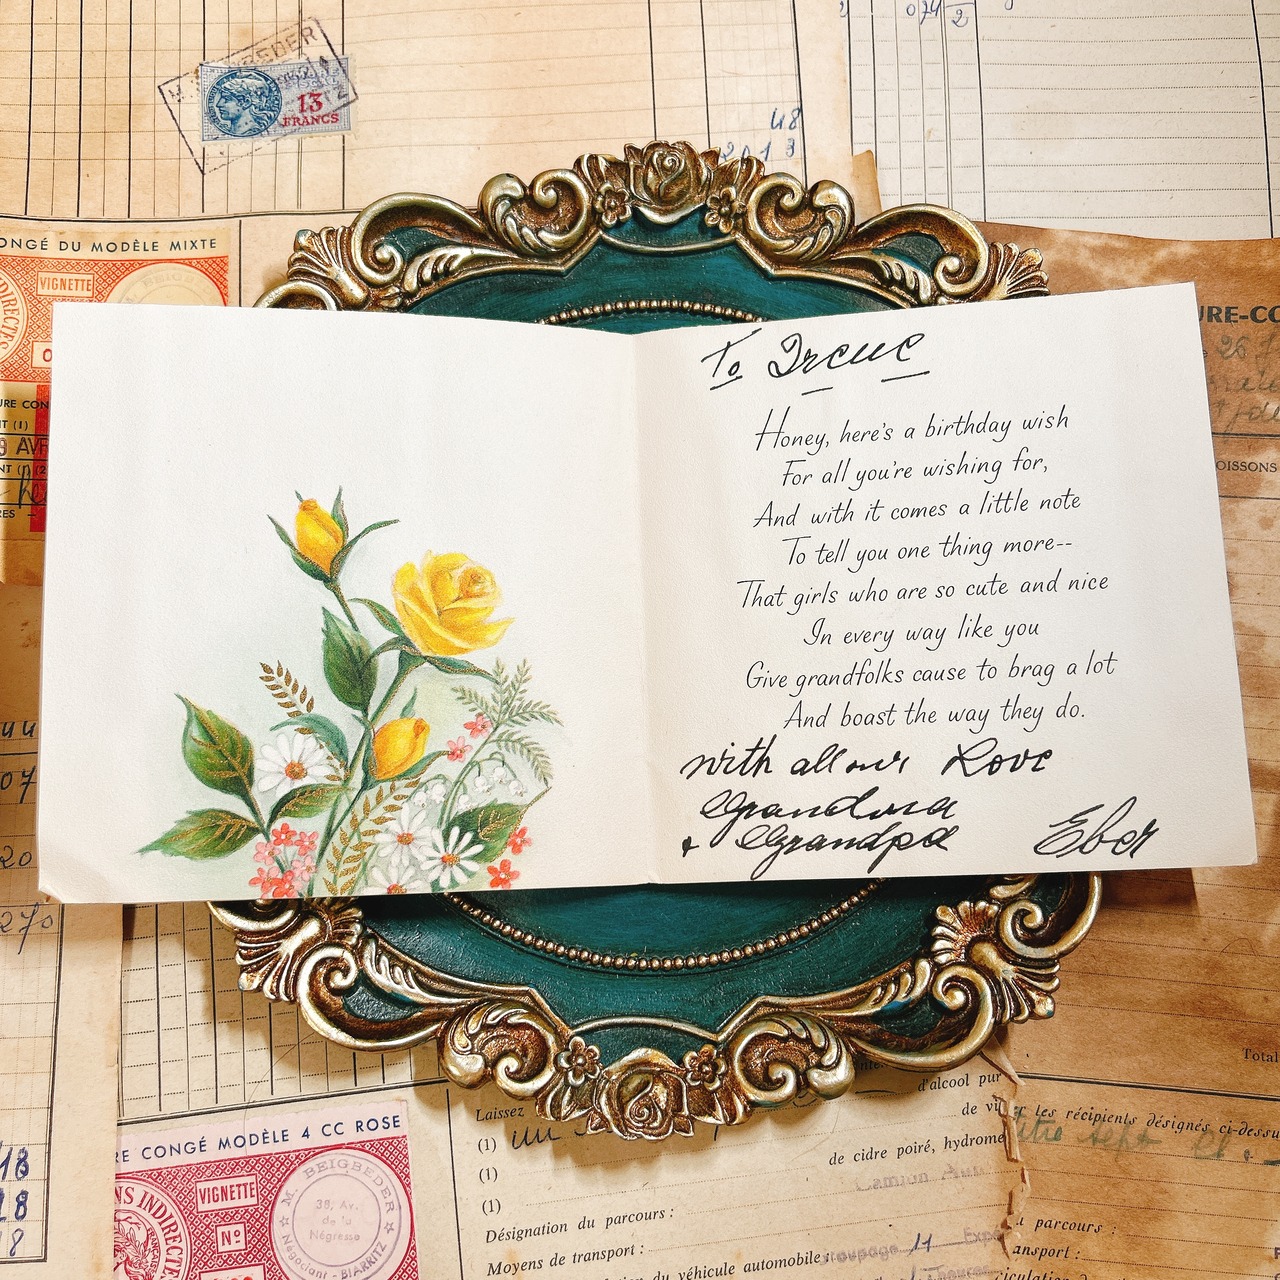 M. BEIGBEDER
13
FRANCS
074
2
48
2013
CONGÉ DU MODÈLE MIXTE
VIGNETTE
INDIRECTES
To Irene
Honey, here's a birthday wish
For all you're wishing for,
And with it comes a little note
To tell you one thing more--
That girls who are so cute and nice
In every way like you
Give grandfolks cause to brag a lot
And boast the way they do.
with all our Love
Grandma
& Grandpa Eber
26
270
18
18
8
CONGÉ MODÈLE 4 CC ROSE
VIGNETTE
Nº
INDIRECTES
M. BEIGBEDER
38, Av.
de la
Négresse
Négociant - BIARRITZ
Total
Laissez
d'alcool pur
(1) un
de cidre poiré, hydrome
(1)
(1)
les récipients désignés ci-dessu
Désignation du parcours :
Moyens de transport :
du véhicule automobile
parcours :